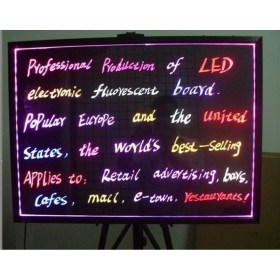 Professional Production of LED
electronic fluorescent board.
Popular Europe and the united
States, the world's best-selling
Applies to: Retail advertising, bars,
Cafes, mail, e-town, restaurants!